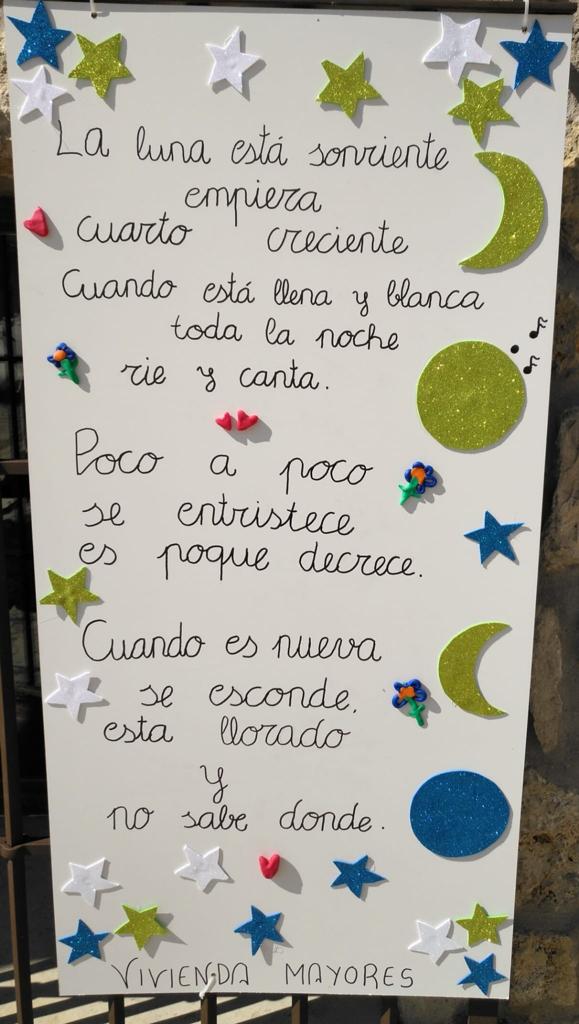 La luna está sonriente
empieza
cuarto creciente
Cuando está llena y blanca
toda la noche
rie y canta.
Poco a poco
se entristece
es poque decrece.
Cuando es nueva
se esconde,
esta llorado
y
no sabe donde.
VIVIENDA MAYORES